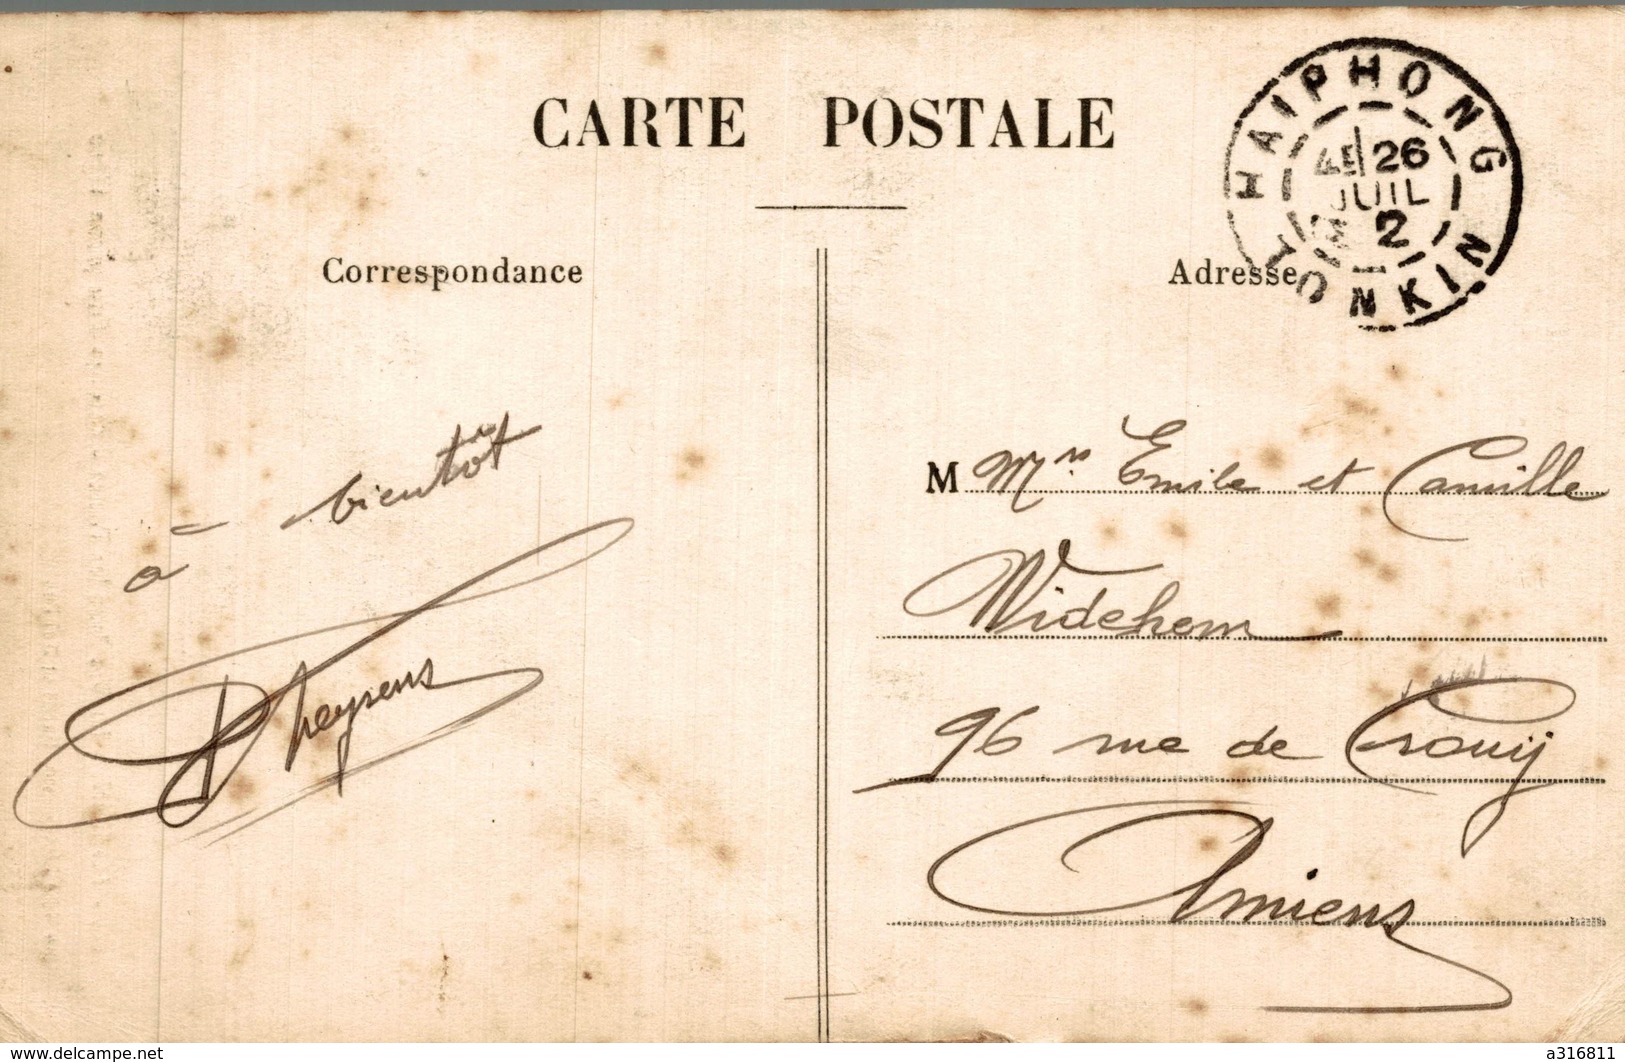 CARTE POSTALE
HAIPHONG
26
JUIL
2
TONKIN
Correspondance
Adresse
à bientôt
M Mrs Emile et Camille
Widehem
96 rue de Crouij
Amiens
www.delcampe.net
a316811